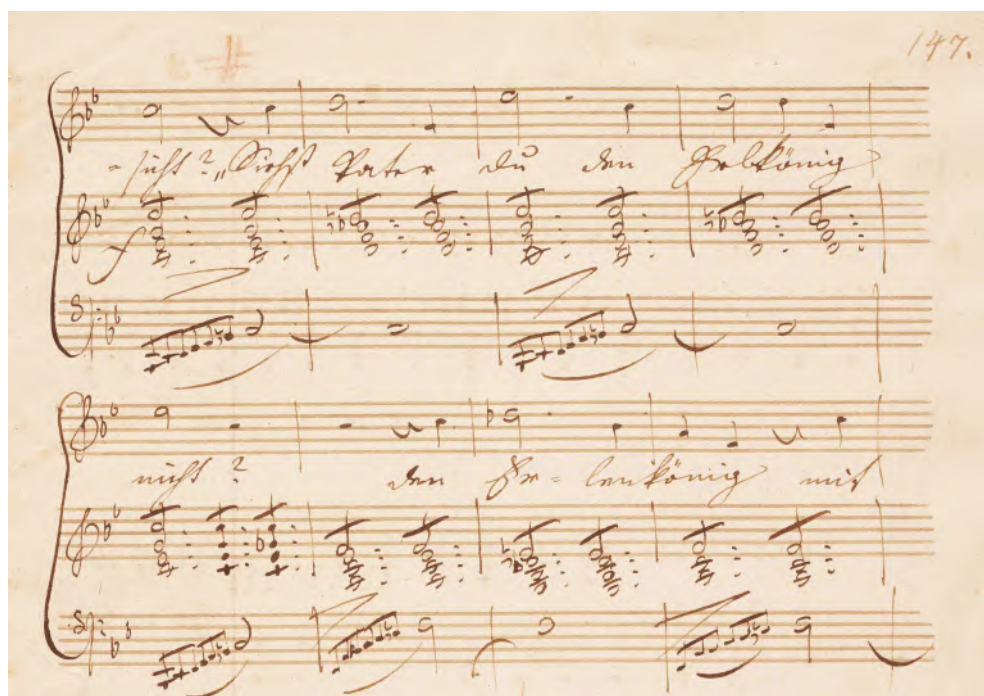 147.
-sicht? „Siehst Vater du den Erlkönig
nicht? den Er-lenkönig mit